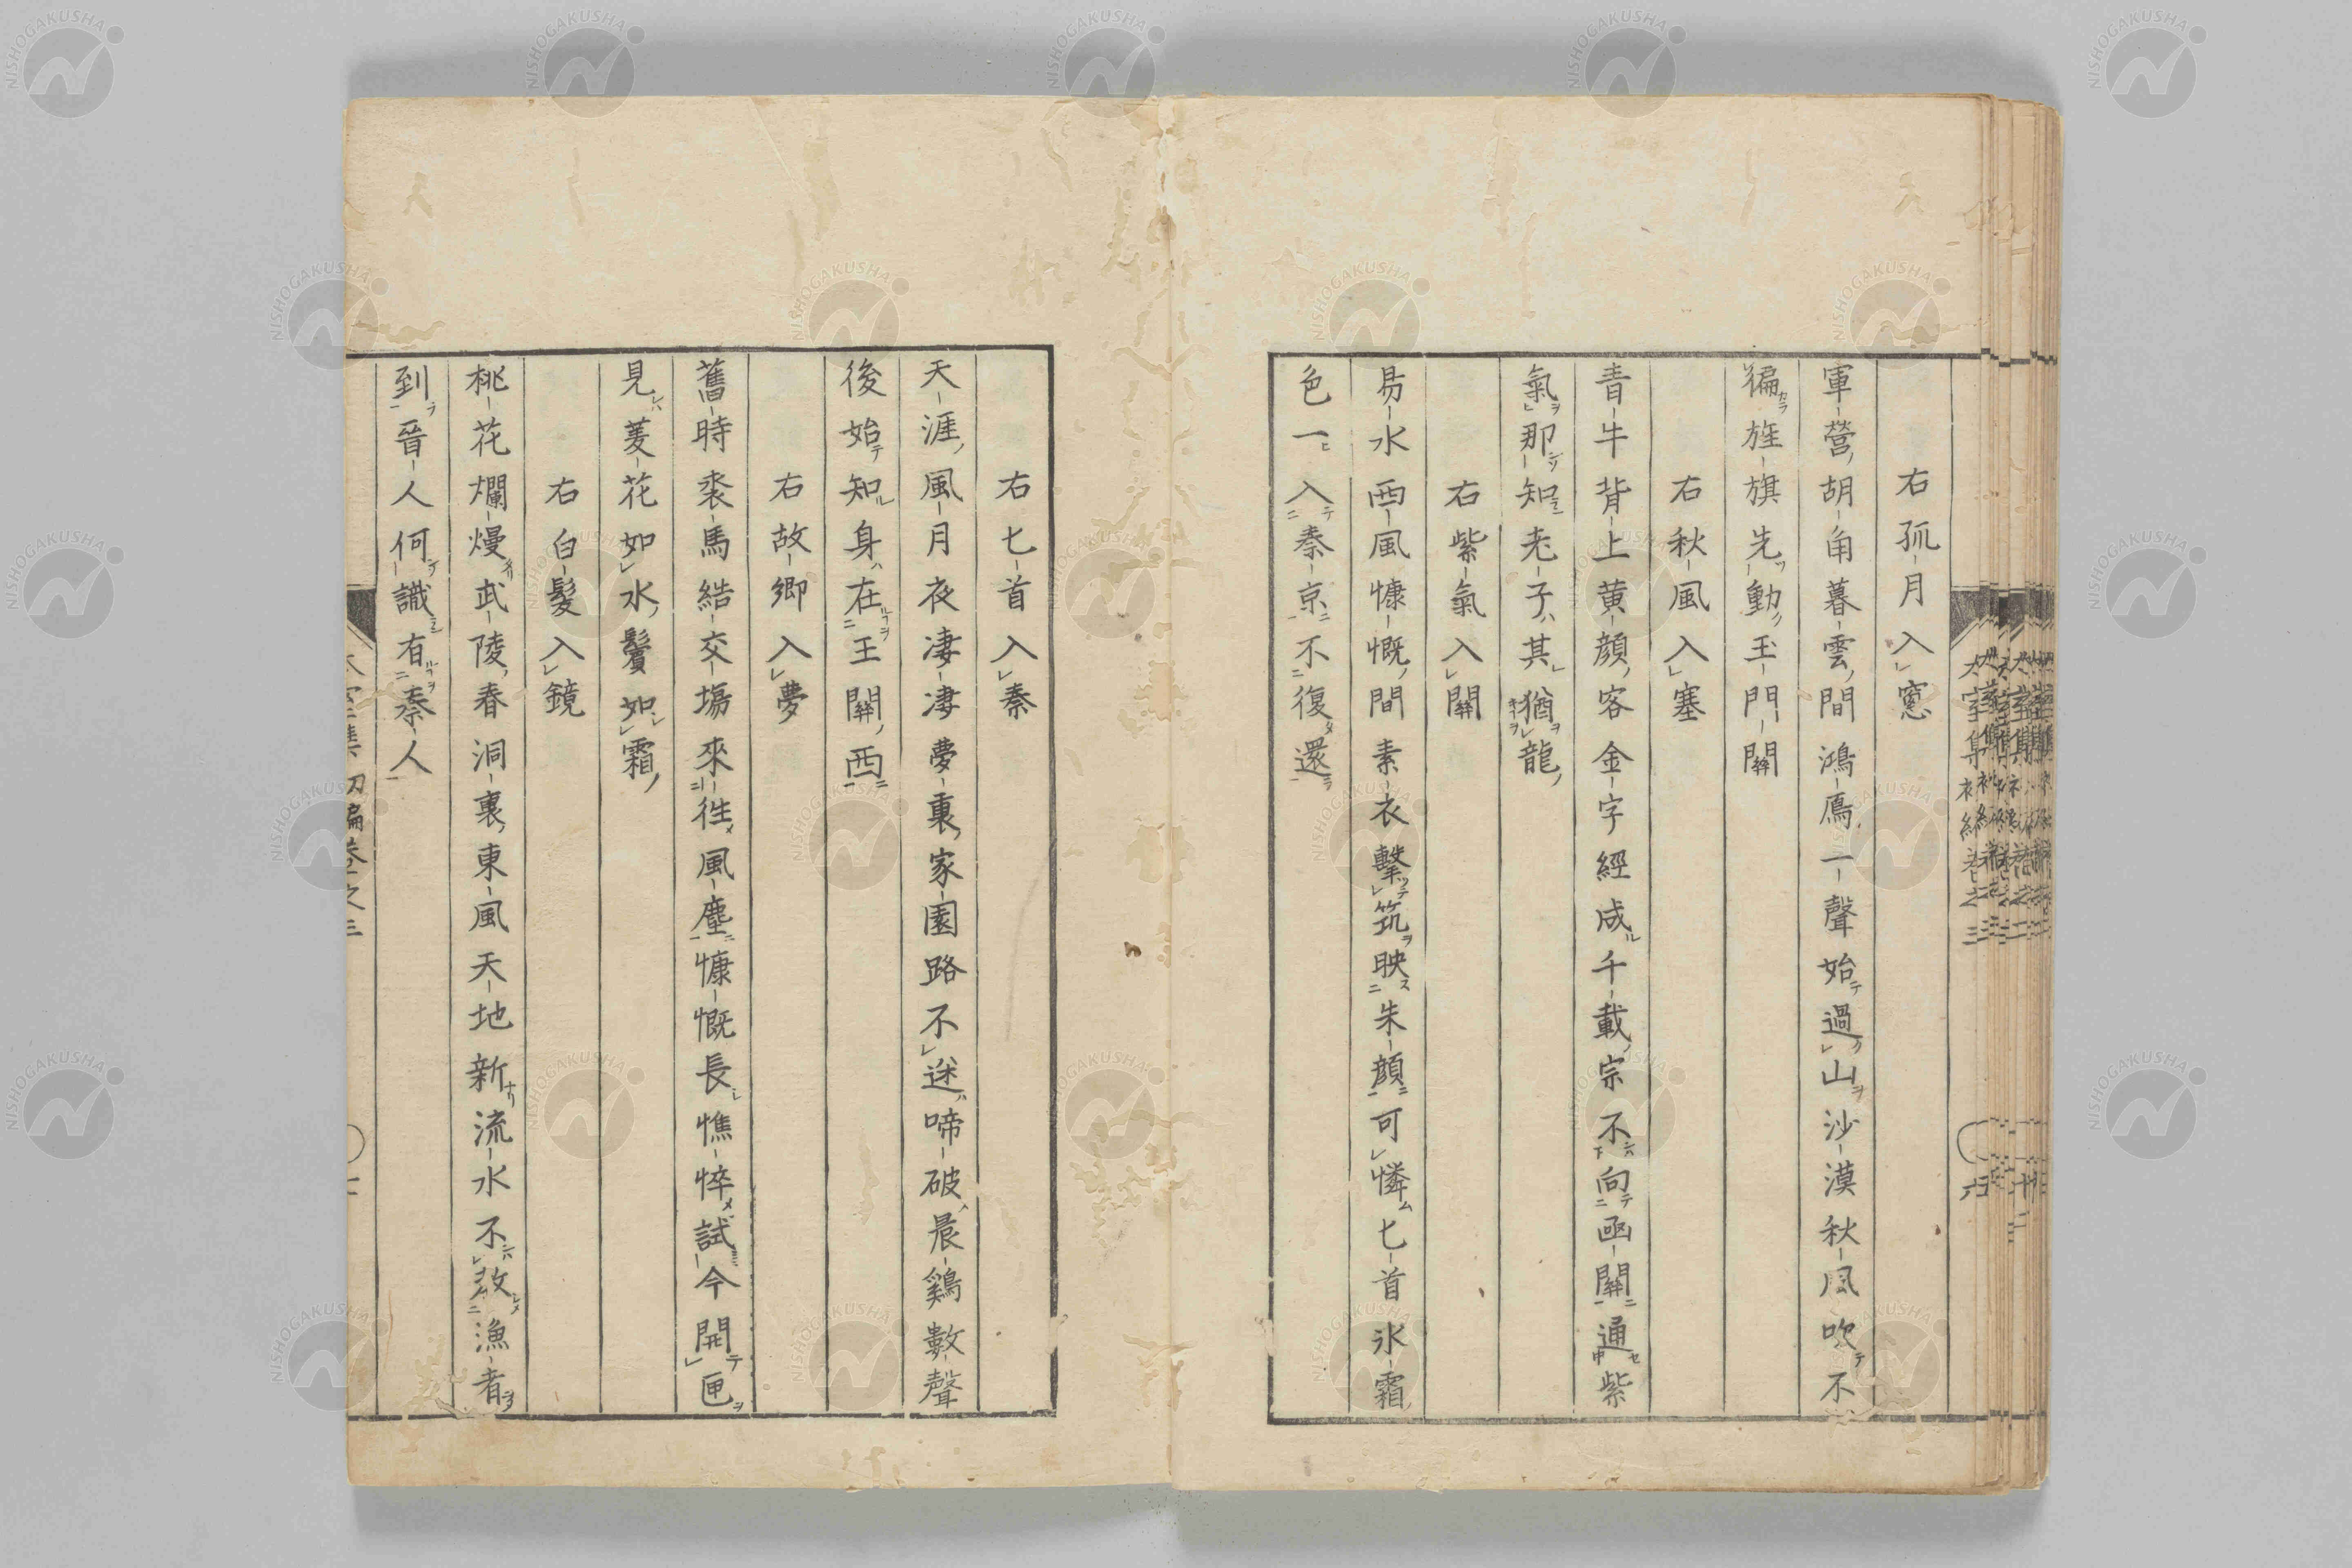 右孤月入窓
軍營胡角暮雲間鴻鴈一聲始過山沙漠秋風吹不
徧旌旗先動玉門關
右秋風入塞
青牛背上黄顔客金字經成千載宗不向函關通紫
氣那知老子其猶龍
右紫氣入關
易水西風慷慨間素衣擊筑映朱顔可憐匕首氷霜
色一入秦京不復還
右匕首入秦
天涯風月夜凄凄夢裏家園路不迷啼破晨鷄數聲
後始知身在玉關西
右故鄉入夢
舊時裘馬結交塲來徃風塵慷慨長憔悴試今開匣
見菱花如水鬢如霜
右白髮入鏡
桃花爛熳武陵春洞裏東風天地新流水不敎漁者
到晉人何識有秦人
NISHOGAKUSHA